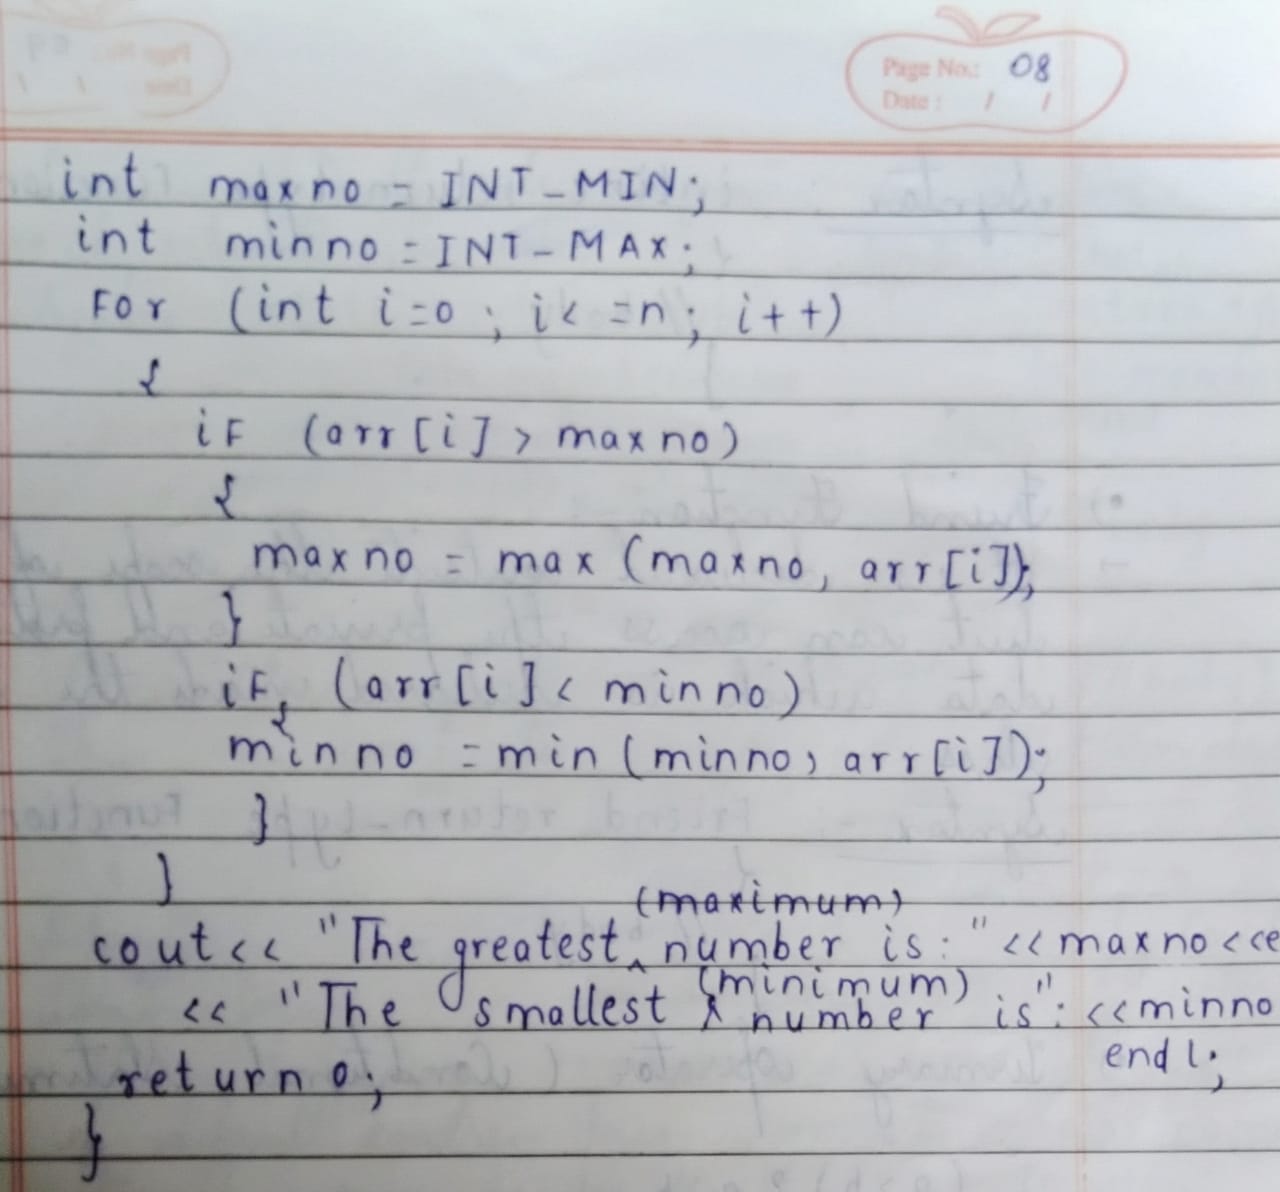 Page No.: 08
Date : / /
int maxno = INT_MIN;
int minno = INT_MAX;
For (int i=0 ; i< =n; i++)
{
iF (arr[i] > maxno)
{
maxno = max (maxno, arr[i]);
}
iF (arr[i] < minno)
{
minno = min (minno, arr[i]);
}
}
(maximum)
cout<< "The greatest ^ number is: "<< maxno <<e
(minimum)
<< "The smallest ^ number is": <<minno
endl;
return 0;
}